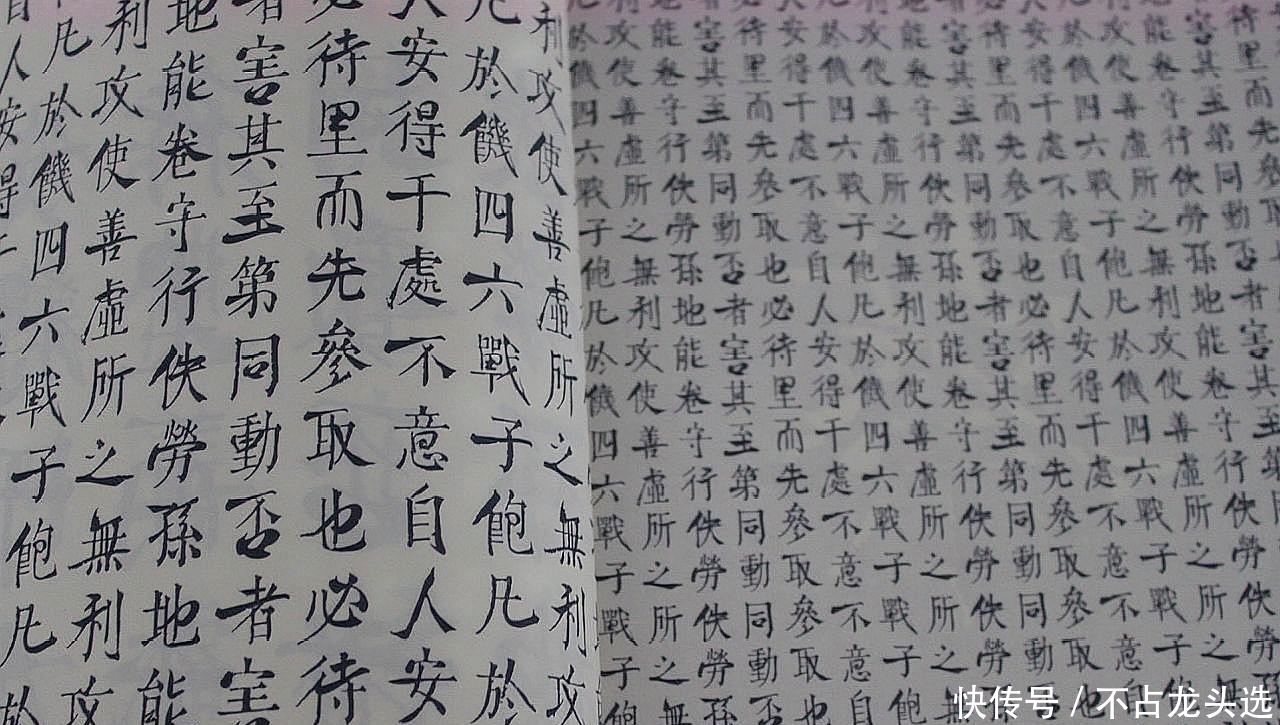 利攻使善虛所之無利攻
凡於饑四六戰子飽凡於
人安得千處不意自人安
必待里而先參取也必待
者害其至第同動否者害
地能卷守行佚勞孫地能
利攻使善虛所之無利攻
凡於饑四六戰子飽凡於
人安得
待里而先參
害其至第同動否者害其至第
能卷守行佚勞孫地能卷守行佚勞佚勞
攻使善虛所之無利攻使善虛所之所之
於饑四六戰子飽凡於饑四六戰子戰子飽
安得千處不意自人安得千處不意不意自
待里而先參取也必待里而先參取參取也
害其至第同動否者害其至第同動同動否
能卷守行佚勞孫地能卷守行佚勞佚勞孫
攻使善虛所之無利攻使善虛所之所之無
於饑四六戰子飽凡於饑四六戰子戰子飽
安得千處不意自人安得千處不意不意自
待里而先參取也必待里而先參取參取也
害其至第同動否者害其至第同動同動否
能卷守行佚勞孫地能卷守行佚勞佚勞孫
攻使善虛所之無利攻使善虛所之所之無
於饑四六戰子飽凡於饑四六戰子戰子飽
快传号 / 不占龙头选